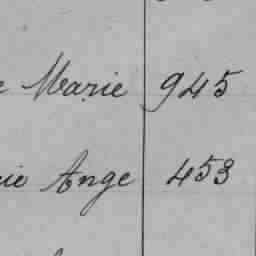 Marie 945
Ange 453